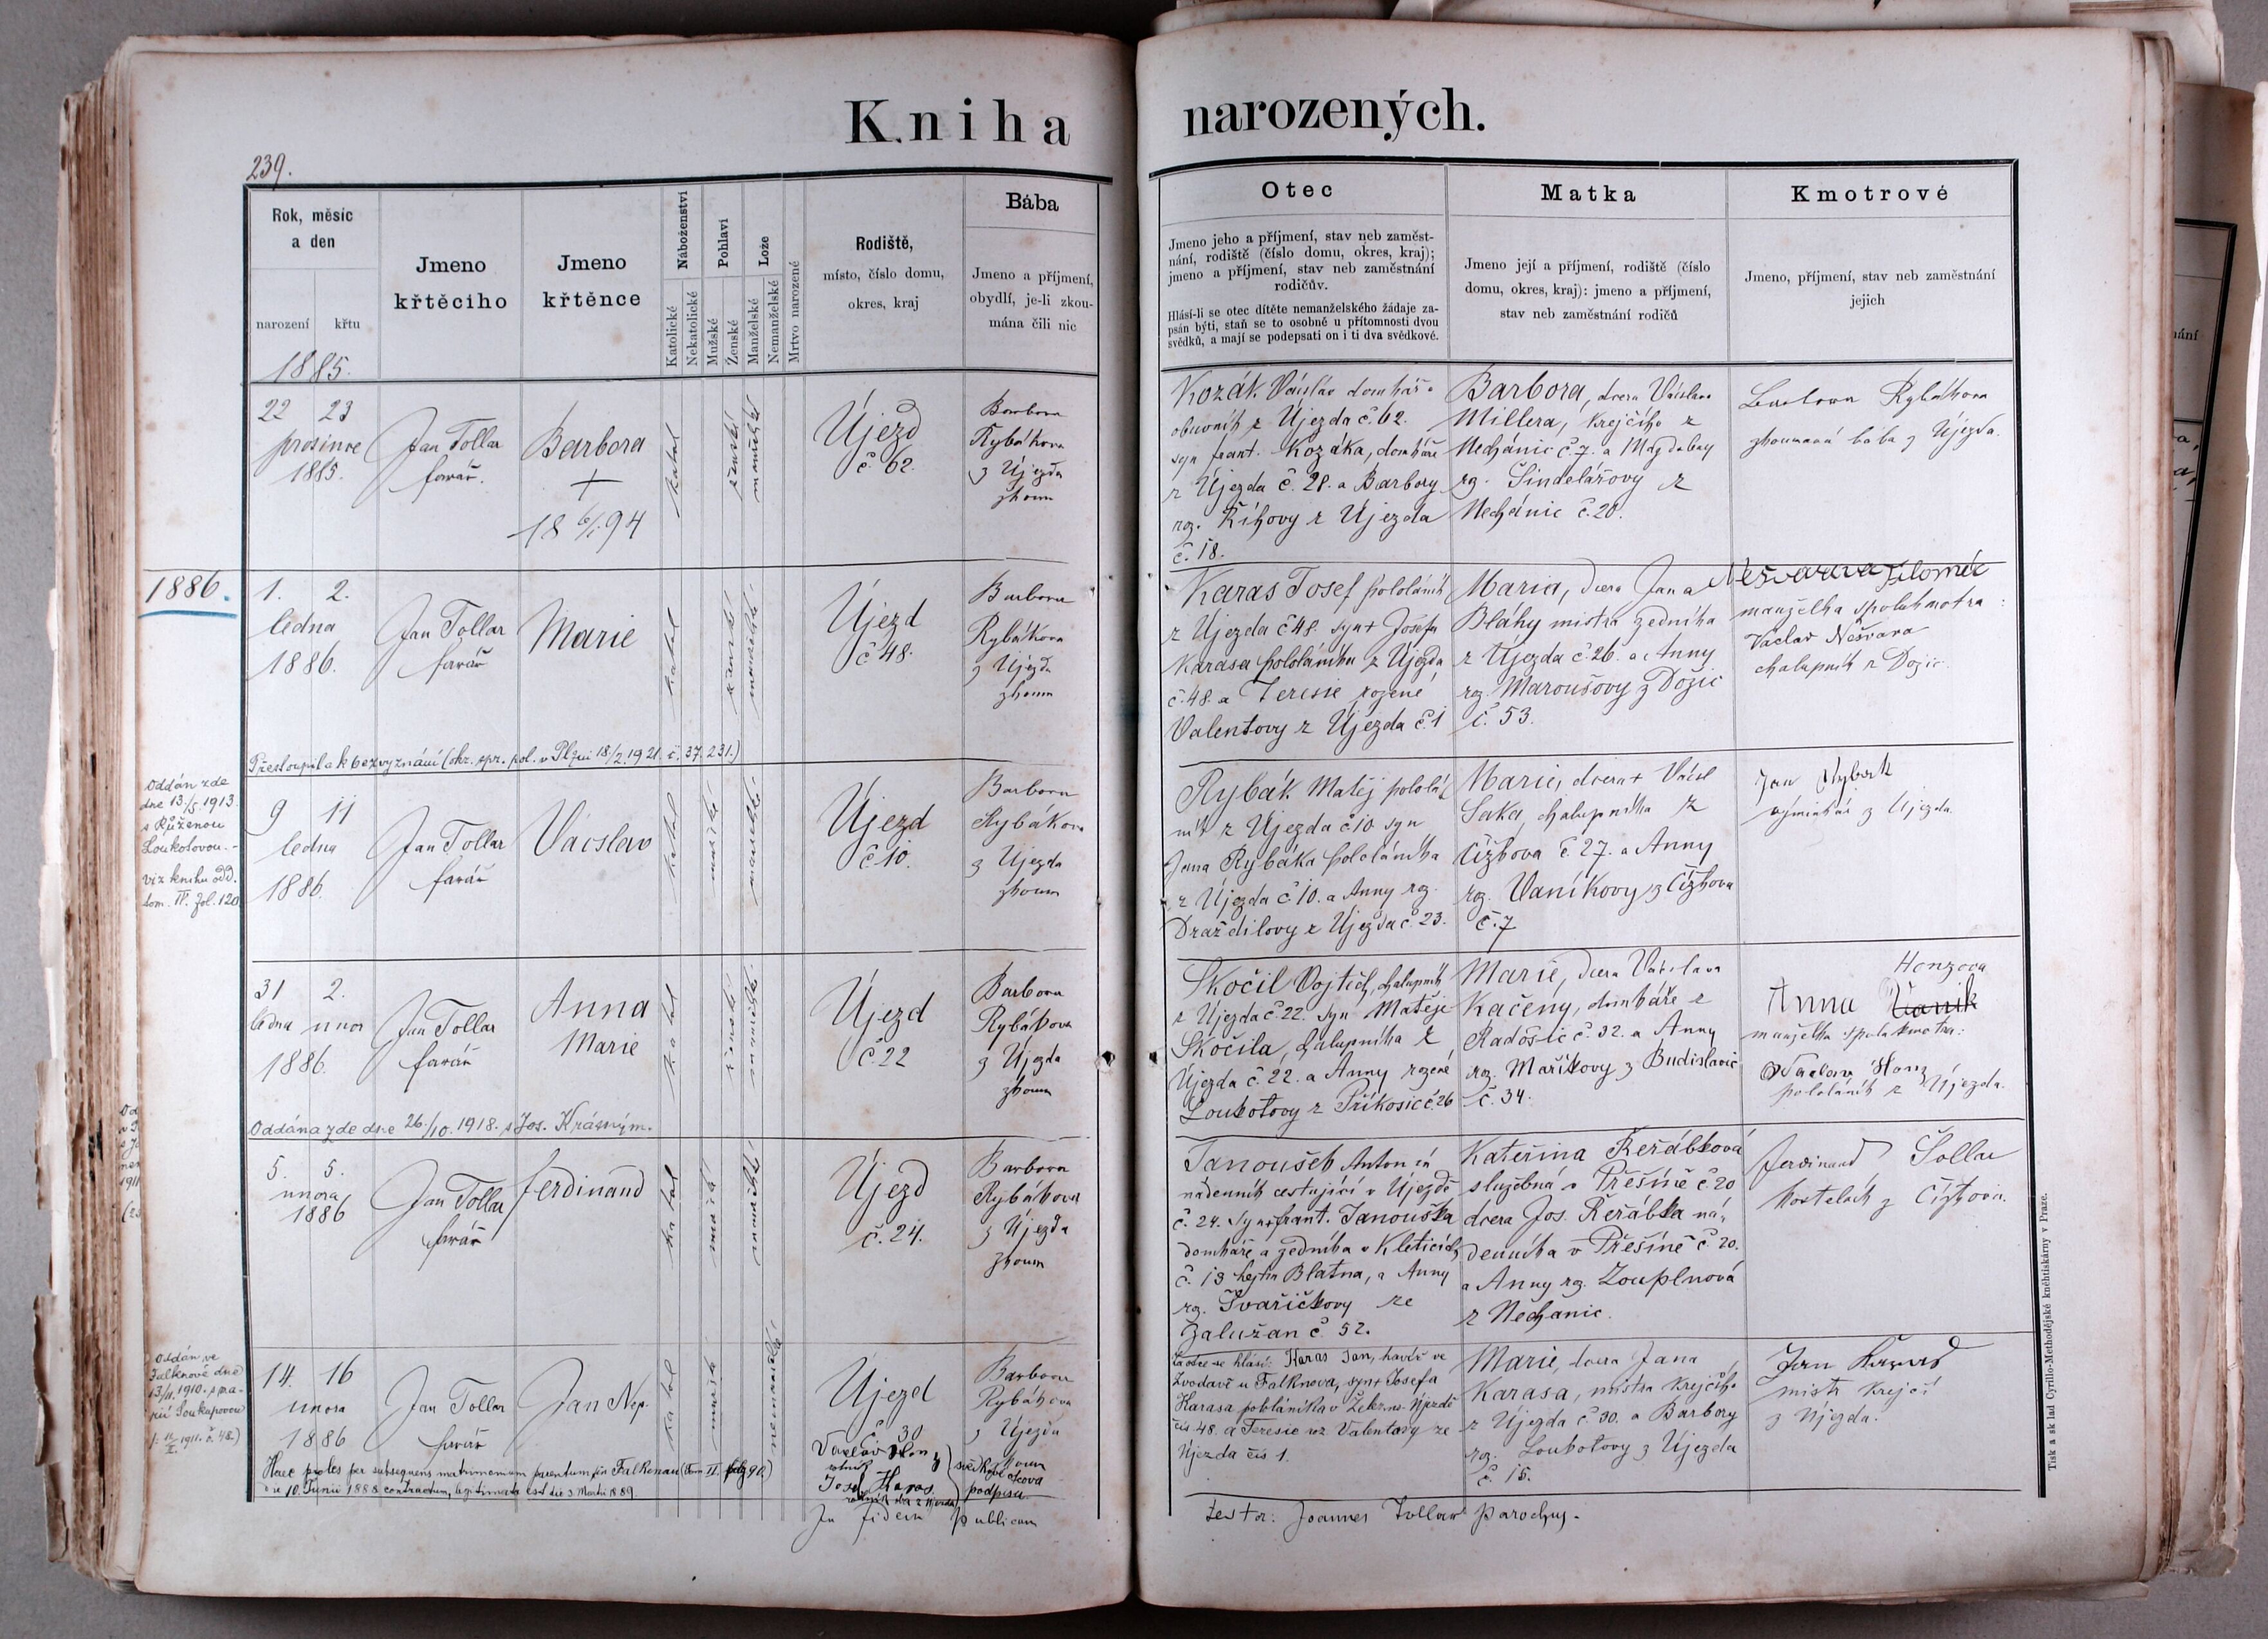 Kniha narozených.
239.
Rok, měsíc
a den
narození křtu
Jmeno
křtěcího
Jmeno
křtěnce
Náboženství
Katolické
Nekatolické
Pohlaví
Mužské
Ženské
Lože
Manželské
Nemanželské
Mrtvo narozené
Rodiště,
místo, číslo domu,
okres, kraj
Bába
Jmeno a příjmení,
obydlí, je-li zkou-
mána čili nic
Otec
Jmeno jeho a příjmení, stav neb zaměst-
nání, rodiště (číslo domu, okres, kraj);
jmeno a příjmení, stav neb zaměstnání
rodičův.
Hlásí-li se otec dítěte nemanželského žádaje za-
psán býti, staň se to osobně u přítomnosti dvou
svědků, a mají se podepsati on i ti dva svědkové.
Matka
Jmeno její a příjmení, rodiště (číslo
domu, okres, kraj): jmeno a příjmení,
stav neb zaměstnání rodičů
Kmotrové
Jmeno, příjmení, stav neb zaměstnání
jejich
1885.
22 23
prosince
1885.
Jan Tollar
farář.
Barbora
+
18 6/1 94
katol
ženské
manžel
Újezd
č. 62.
Barbora
Rybákova
z Újezda
zkoum
Kozák Václav domkář a
obuvník z Újezda č. 62.
syn frant. Kozáka, domkáře
z Újezda č. 28. a Barbory
rz. Říhovy z Újezda
č. 18.
Barbora, dcera Václava
Millera, krejčího z
Nechánic č. 7. a Magdaleny
rz. Šindelářovy z
Nechánic č. 20.
Barbora Rybákova
zkoumaná bába z Újezda.
1886.
1. 2.
ledna
1886.
Jan Tollar
farář
Marie
katol
ženské
manželské
Újezd
č 48.
Barbora
Rybákova
z Újezda
zkoum
Karas Josef pololáník
z Újezda č 48. syn + Josefa
Karasa pololáníka z Újezda
č. 48. a Teresie rozené
Valentovy z Újezda č 1
Maria, dcera Jana
Bláhy mistra zedníka
z Újezda č. 26. a Anny
rz. Maroušovy z Dožic
č. 53.
Nešvarova Filomén
manželka spolukmotra:
Václav Nešvara
chalupník z Dožic.
Přestoupila k bezvyznání (okr. spr. pol. v Plzni 18./2. 1921. č. 37.231.)
Oddán zde
dne 13./5. 1913.
s Růženou
Loukotovou. -
viz knihu odd.
tom. IV. fol. 120
9 11
ledna
1886.
Jan Tollar
farář
Václav
katol
mužské
manželské
Újezd
č 10.
Barbora
Rybákova
z Újezda
zkoum
Rybák Matěj pololá
ník z Újezda č 10 syn
Jana Rybáka pololáníka
z Újezda č. 10. a Anny rz.
Draždilovy z Újezda č. 23.
Marie, dcera + Václ
Saka, chalupníka z
Čížkova č. 27. a Anny
rz. Vaníkovy z Čížkova
č. 7
Jan Rybak
výminkář z Újezda
31 2.
ledna unor
1886.
Jan Tollar
farář
Anna
Marie
katol
ženské
manželské
Újezd
č. 22
Barbora
Rybákova
z Újezda
zkoum
Skočil Vojtěch, chalupník
z Újezda č. 22. syn Matěje
Skočila, chalupníka z
Újezda č. 22. a Anny rozené
Loukotovy z Příkosic č. 26
Marie, dcera Václava
Kačeny, domkáře z
Radošic č. 32. a Anny
rz. Maříkovy z Budislavic
č. 34.
Honzova
Anna
manželka spolukmotra:
Václav Honz
pololáník z Újezda.
Oddána zde dne 26./10. 1918. s Jos. Krásným.
5. 5.
unora
1886
Jan Tollar
farář
Ferdinand
katol
mužské
manželské
Újezd
č. 24.
Barbora
Rybákova
z Újezda
zkoum
Janoušek Antonín
nádenník cestující v Újezdě
č. 24. syn + frant. Janouška
domkáře a zedníka v Kleticích
č. 13 hejtm Blatna, a Anny
rz. Švaříčkovy ze
Zalužan č 52.
Kateřina Řeřábková
služebná v Přešíně č 20
dcera Jos. Řeřábka ná-
denníka v Přešíně č. 20.
a Anny rz. Zouplnová
z Nechanic.
Ferdinand Tollar
kostelník z Čížkova.
Oddán ve
Falknově dne
13/11. 1910. s Ma-
rií Soukupovou
14. 16
unora
1886
Jan Tollar
farář
Jan Nep.
katol
mužské
nemanželské
Újezd
č 30
Barbora
Rybákova
z Újezda
zkoum
Za otce se hlásí: Karas Jan, havíř ve
Zvodavě u Falknova, syn + Josefa
Karasa pololáníka v Želez. m. Újezdě
čís 48. a Teresie roz. Valentovy ze
Újezda čís 1.
Marie, dcera Jana
Karasa, mistra krejčího
z Újezda č. 30. a Barbory
rz. Loukotovy z Újezda
č. 15.
Jan Karas
mistr krejčí
z Újezda.
Haec proles per subsequens matrimonium parentum in Falkenau (Tom II. fol 90.)
die 10. Junii 1888. contractum, legitimata est die 3. Martii 1889.
Vaclav Honz
rolník
Josef Karas
rolník oba z Újezda
svědkové
podpisu
In fidem publicam
testor: Joannes Tollar parochus.
Tisk a sklad Cyrillo-Methodějské knihtiskárny v Praze.